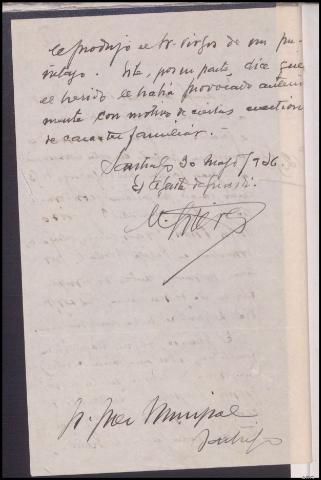 le produjo el Sr. Virgos de un pu-
ñetazo. Este, por su parte, dice que
el herido le había provocado anterior-
mente con motivo de ciertas cuestiones
de caracter familiar.-
Santiago 30 mayo / 936
El Agente de guardia.
Sr. Juez Municipal
Santiago